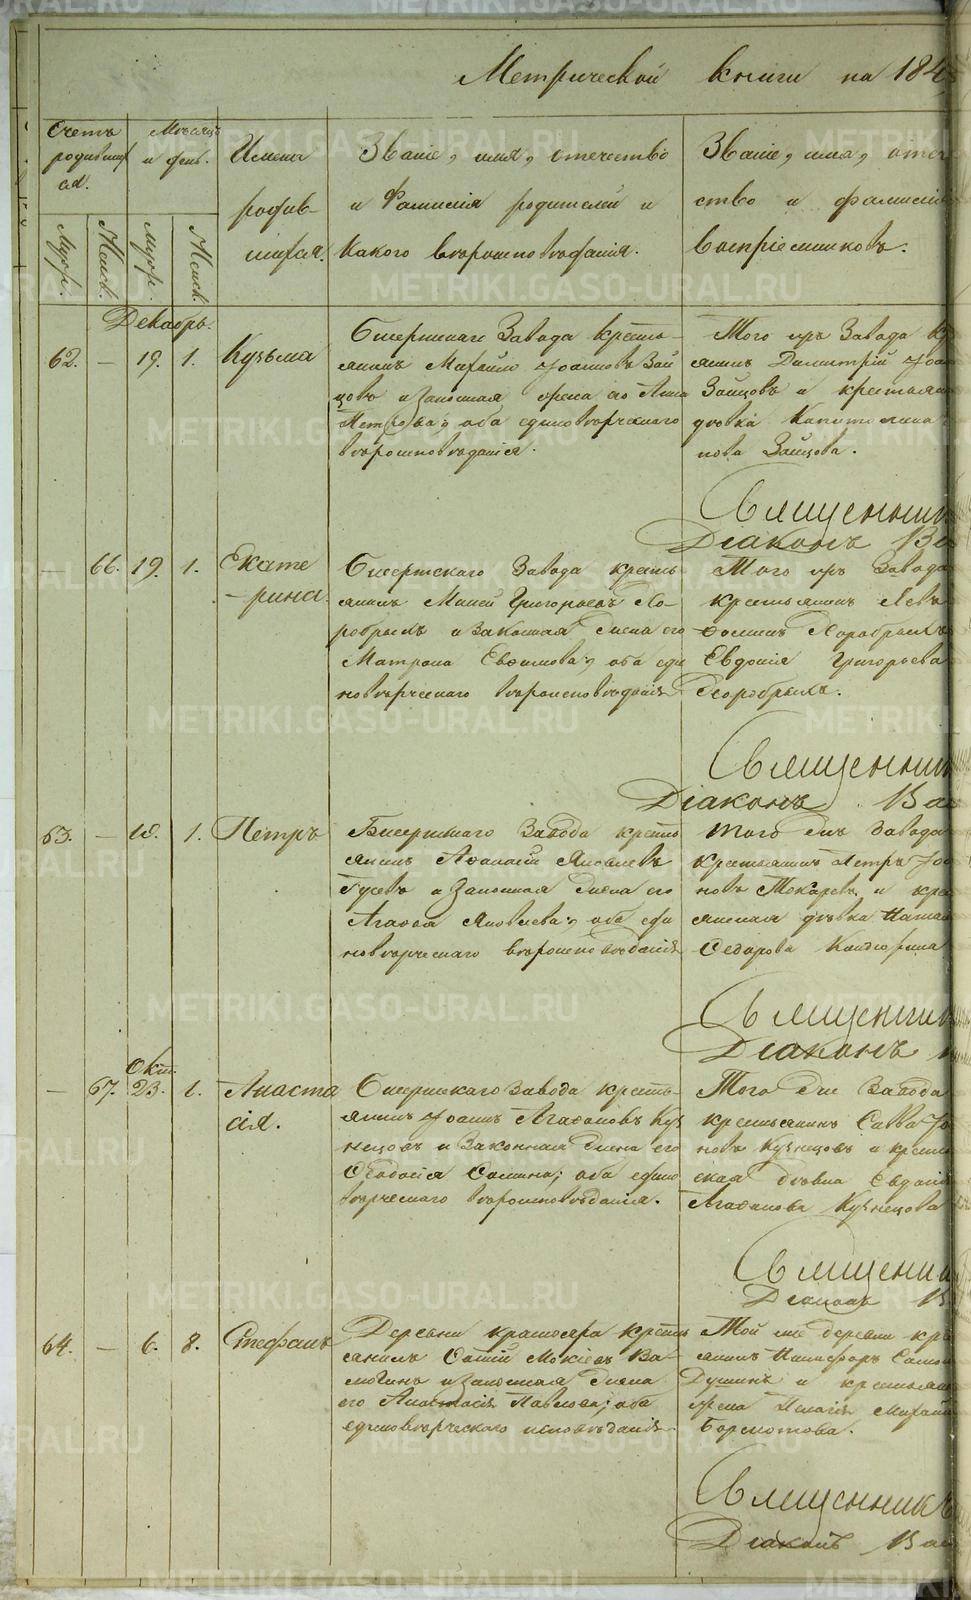 Метрической книги на 184
Счетъ родившихся.
Мужс. Женс.
Мѣсяцъ и день.
Мужс. Женс.
Имена родив-шихся.
Званіе, имя, отечество
и Фамилія родителей и
какого вѣроисповѣданія.
Званіе, имя, отече
ство и фамилія
воспріемниковъ.
Декабрь.
62. — 19. 1. Кузьма
Бисертскаго Завода кресть-
янинъ Михаилъ Іоанновъ Зай
цовъ и Законная жена его Анна
Петрова, оба единовѣрческаго
вѣроисповѣданія.
Того жъ Завода кр
янинъ Димитрій Іоан
Зайцовъ и крестьян
дѣвка Капитолина
нова Зайцова.
Священник
Діаконъ Ва
— 66. 19. 1. Екате
-рина.
Бисертскаго Завода кресть-
янинъ Григорьевъ Хо-
робрыхъ и Законная жена его
Матрона Евѳимова, оба еди
новѣрческаго вѣроисповѣданія
Того жъ Завода
крестьянинъ Левъ
Хоробрыхъ
Евдокія Григорьева
Хоробрыхъ.
Священник
Діаконъ Ва
63. — 1. Петръ
Бисертскаго Завода кресть
янинъ Аѳанасій Яковлевъ
Гусевъ и Законная жена его
Агаѳія Яковлева, оба еди
новѣрческаго вѣроисповѣданія
Того же Завода
крестьянинъ Петръ Іоа
новъ Токаревъ и крес
янская дѣвка Натал
Ѳедорова
Священник
Діаконъ
— 67. Окт. 23. 1. Анаста
сія.
Бисертскаго Завода кресть-
янинъ Іоаннъ Агаѳоновъ Куз
нецовъ и Законная жена его
Ѳеодосія Саввина; оба едино
вѣрческаго вѣроисповѣданія.
Того же Завода
крестьянинъ Савва Іо
новъ Кузнецовъ и крестья
ская дѣвка Евдокія
Агаѳонова Кузнецова
Священник
Діаконъ В
64. — 6. 8. Стефанъ
Деревни Красояра кресть
янинъ Мокіевъ Ва
и Законная жена
его Анастасія Павлова; оба
единовѣрческаго исповѣданія.
Той же деревни кре
янинъ Никифоръ
Душинъ и крестьян
жена Пелагія Михаил
Бормотова.
Священникъ
Діаконъ Ва
METRIKI.GASO-URAL.RU